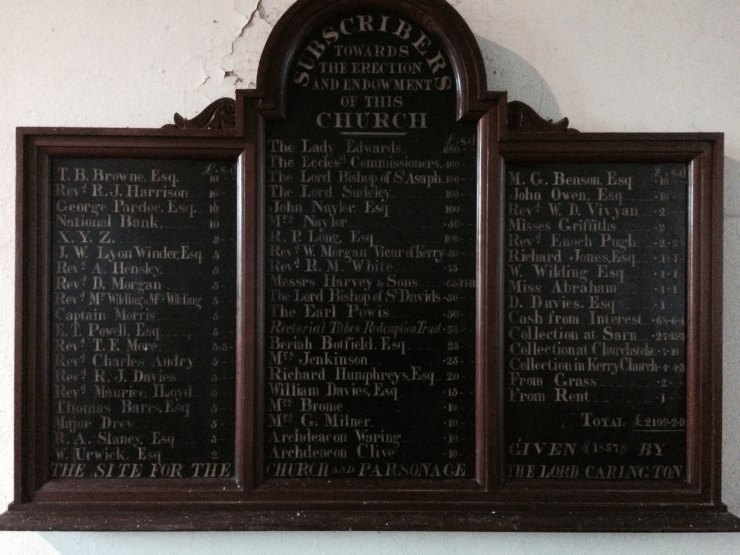 SUBSCRIBERS
TOWARDS
THE ERECTION
AND ENDOWMENT
OF THIS
CHURCH
£ s d
T. B. Browne. Esq. 10
Revd R. J. Harrison. 10
George Pardoe. Esq. 10
National Bank. 10
X. Y. Z. 5
J. W. Lyon Winder, Esq 5
Revd A. Hensley. 5
Revd D. Morgan 5
Revd Mr Wilding & Mrs Wilding 5
Captain Morris 5
E. T. Powell, Esq 5
Revd T. F. More. 5
Revd Charles Audry 5
Revd R. J. Davies 5
Revd Maurice Lloyd 5
Thomas Barrs, Esq 5
Major Drew 5
R. A. Slaney, Esq 5
W. Urwick. Esq 2
£ s d
The Lady Edwards.
The Ecclesl Commissioners. 100
The Lord Bishop of St Asaph. 100
The Lord Sudeley. 100
John Naylor. Esq 100
Mrs Naylor. 50
R. P. Long, Esq 100
Revd W. Morgan Vicar of Kerry
Revd R. M. White
Messrs Harvey & Sons
The Lord Bishop of St Davids 50
The Earl Powis 50
Rectorial Tithes Redemption Trust 50
Beriah Botfield. Esq. 25
Mrs Jenkinson 25
Richard Humphreys, Esq 20
William Davies, Esq 15
Mrs Brome 10
Mrs G. Milner. 10
Archdeacon Waring 10
Archdeacon Clive 10
£ s d
M. G. Benson, Esq 10
John Owen, Esq 10
Revd W. D. Vivyan 2
Misses Griffiths 2
Revd Enoch Pugh 2 2
Richard Jones, Esq 1 1
W. Wilding Esq 1 1
Miss Abraham 1
D. Davies. Esq 1
Cash from Interest 68 6 4
Collection at Sarn
Collection at Churchstoke 7 10
Collection in Kerry Church 4 4 3
From Grass 2
From Rent 1
TOTAL £2199-2-9
THE SITE FOR THE CHURCH AND PARSONAGE
GIVEN (1857) BY
THE LORD CARINGTON